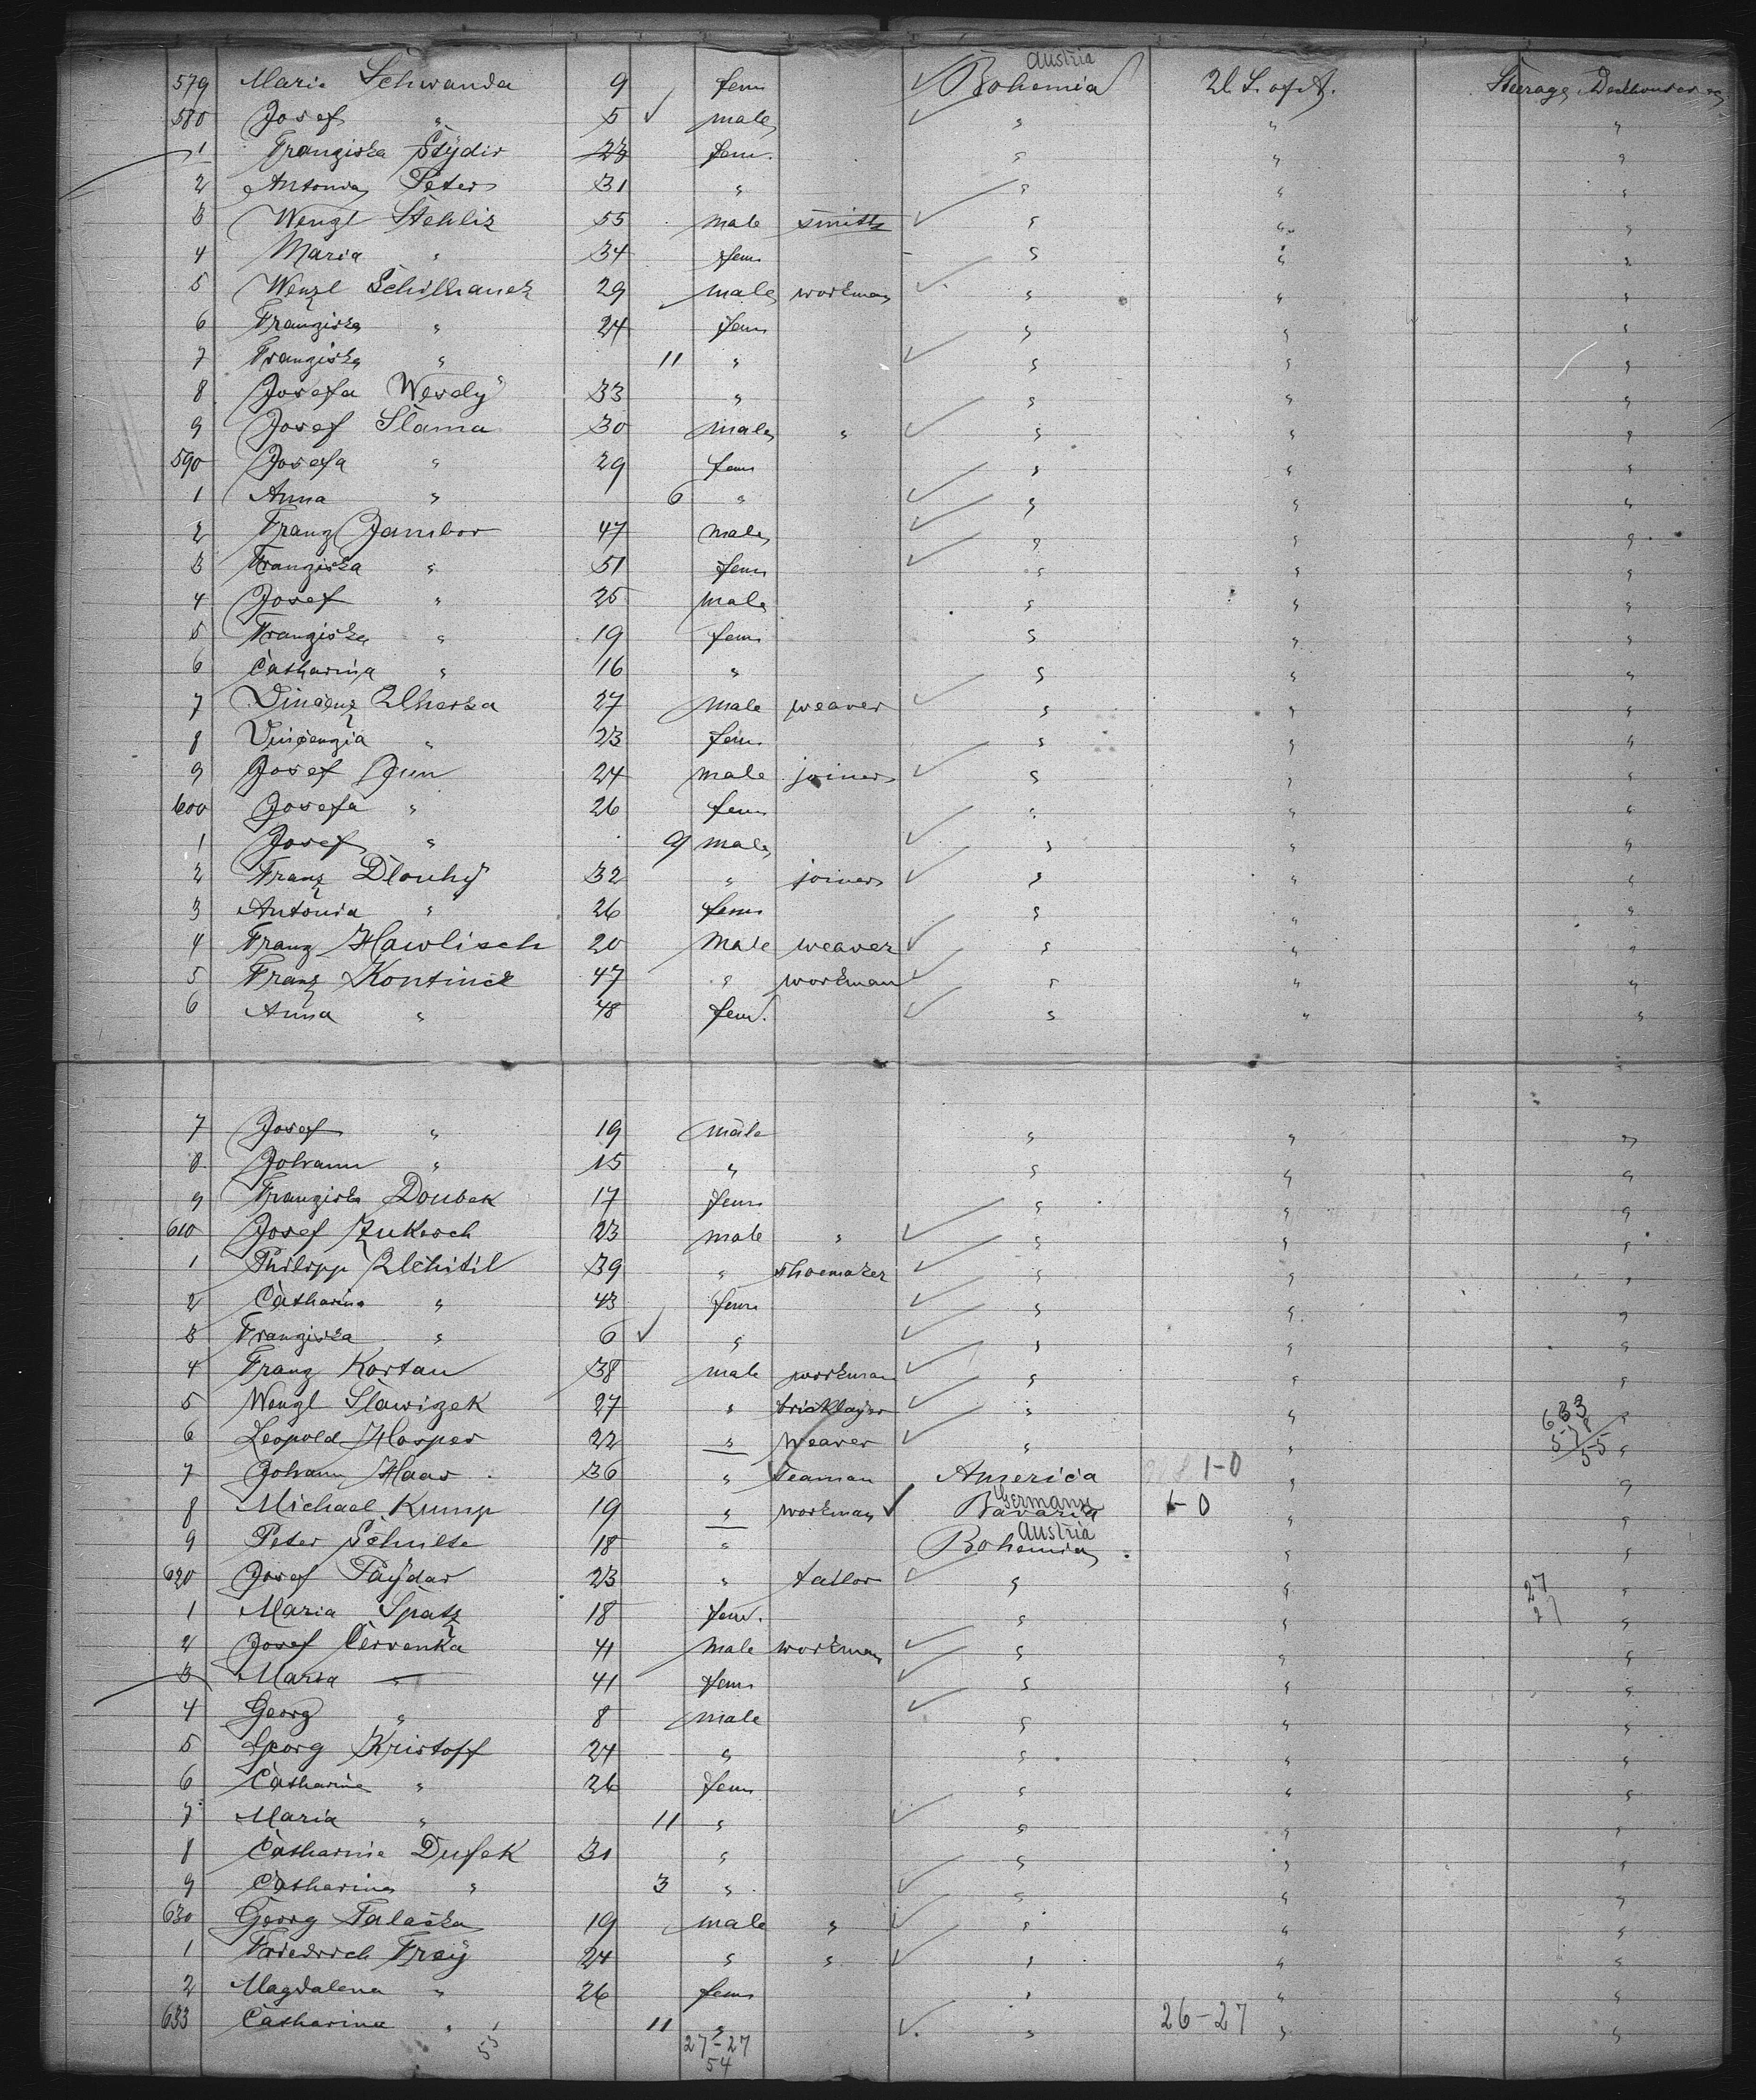 Austria
579 Maria Schwanda 9 fem Bohemia U. S. of A. Steerage
580 Josef " 5 ✓ male " " "
1 Franziska 23 fem. " " "
2 Antonia Peter 31 " " " "
3 Wenzl Stehlik 55 male smith " " "
4 Maria " 34 fem " " "
5 Wenzl Schilhanek 29 male workman " " "
6 Franziska " 24 fem " " "
7 Franziska " 11 " " " "
8 Josefa Wesely 33 " " " "
9 Josef Slama 30 male " " " "
590 Josefa " 29 fem " " "
1 Anna " 6 " " " "
2 Franz Jambor 47 male " " "
3 Franziska " 51 fem " " "
4 Josef " 25 male " " "
5 Franziska " 19 fem " " "
6 Catharina " 16 " " " "
7 Vincenz Uherka 27 male weaver " " "
8 Vincenzia " 23 fem " " "
9 Josef Jun 24 male joiner " " "
600 Josefa " 26 fem " " "
1 Josef " 9 male " " "
2 Franz Dlouhy 32 " joiner " " "
3 Antonia " 26 fem " " "
4 Franz Hawlisch 20 male weaver " " "
5 Franz Kontinek 47 " workman " " "
6 Anna " 48 fem. " " "
7 Josef " 19 male " " "
8 Johann " 15 " " " "
9 Franziska Doubek 17 fem " " "
610 Josef Zukesch 23 male " " " "
1 Philipp Uchitil 39 " shoemaker " " "
2 Catharina " 43 fem " " "
3 Franziska " 6 ✓ " " " "
4 Franz Kortan 38 male workman " " "
5 Wenzl Slawizek 27 " bricklayer " " " 633
6 Leopold Hosper 22 " weaver " " " 578 55
7 Johann Haas 36 " seaman America 1-0 " "
Germany
8 Michael Kump 19 " workman ✓ Bavaria 1-0 " "
Austria
9 Peter Schulte 18 " Bohemia " "
620 Josef Paydar 23 " tailor " " " 27
1 Maria Spatz 18 fem. " " " 27
2 Josef Cervenka 41 male workman " " "
3 Maria " 41 fem " " "
4 Georg " 8 male " " "
5 Georg Kristoff 24 " " " "
6 Catharina " 26 fem " " "
7 Maria " 11 " " " "
8 Catharina Dufek 31 " " " "
9 Catharina " 3 " " " "
630 Georg Talaska 19 male " " " "
1 Friedrich Frey 24 " " " " "
2 Magdalena " 26 fem " " "
633 Catharina " 11 " " 26-27 " "
55 27-27
54